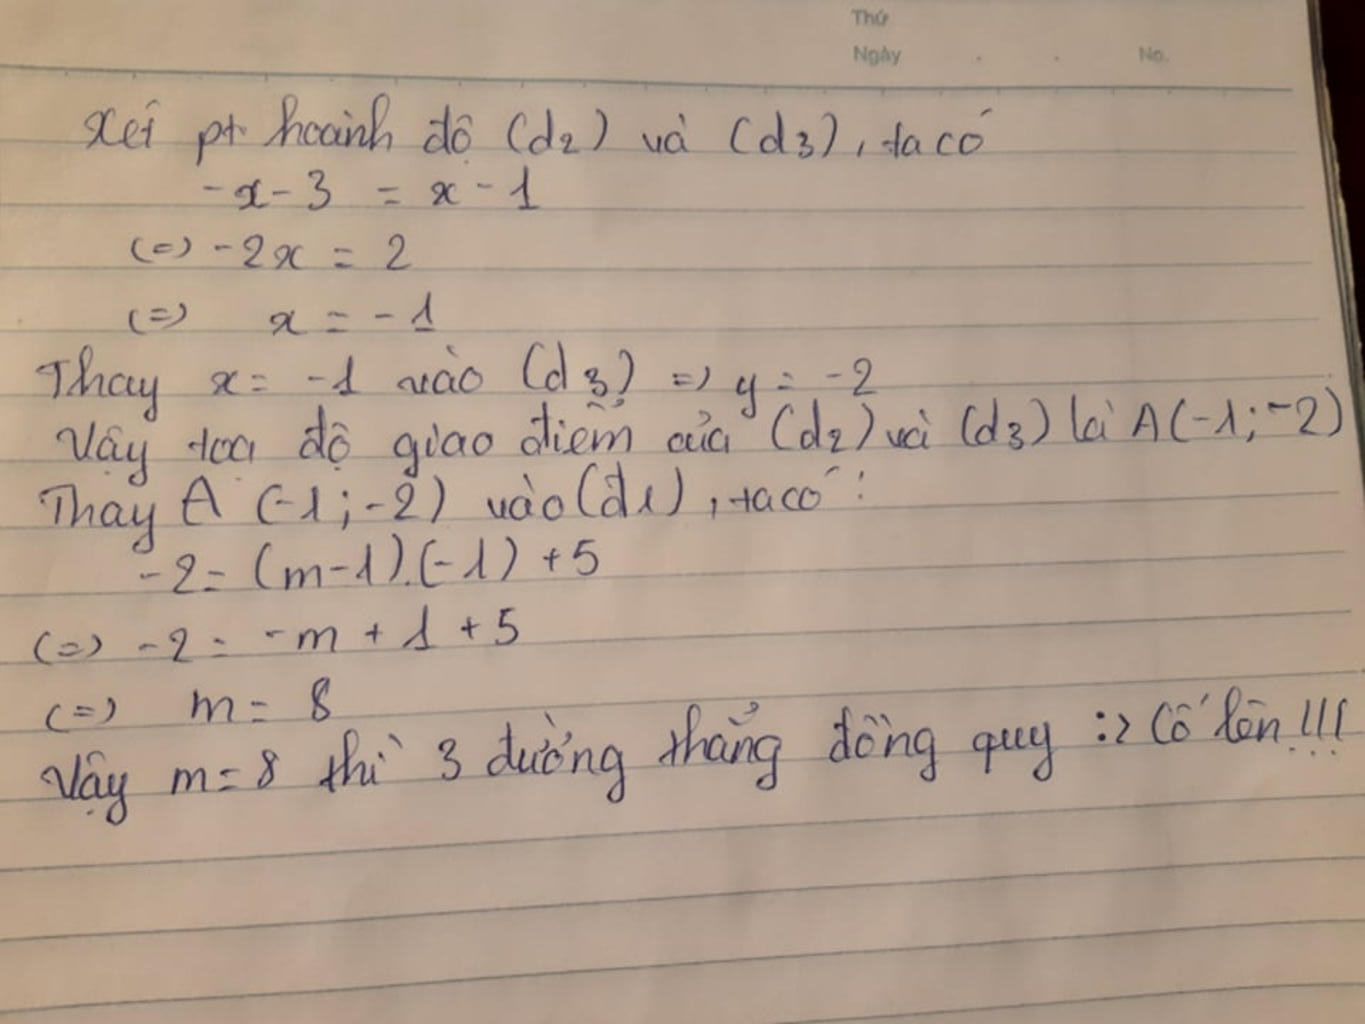 Thứ
Ngày . . No.
Xét pt hoành độ (d2) và (d3), ta có
-x - 3 = x - 1
(=) -2x = 2
(=) x = -1
Thay x = -1 vào (d3) => y = -2
Vậy toạ độ giao điểm của (d2) và (d3) là A(-1; -2)
Thay A (-1; -2) vào (d1), ta có :
-2 = (m-1).(-1) + 5
(=) -2 = -m + 1 + 5
(=) m = 8
Vậy m = 8 thì 3 đường thẳng đồng quy :> Cố lên !!!